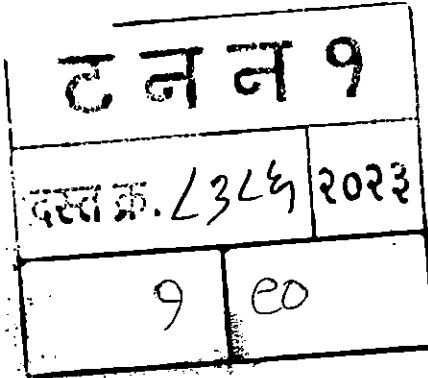 ट न न १
दस्त क्र. ८३८५ २०२३
१ ९०